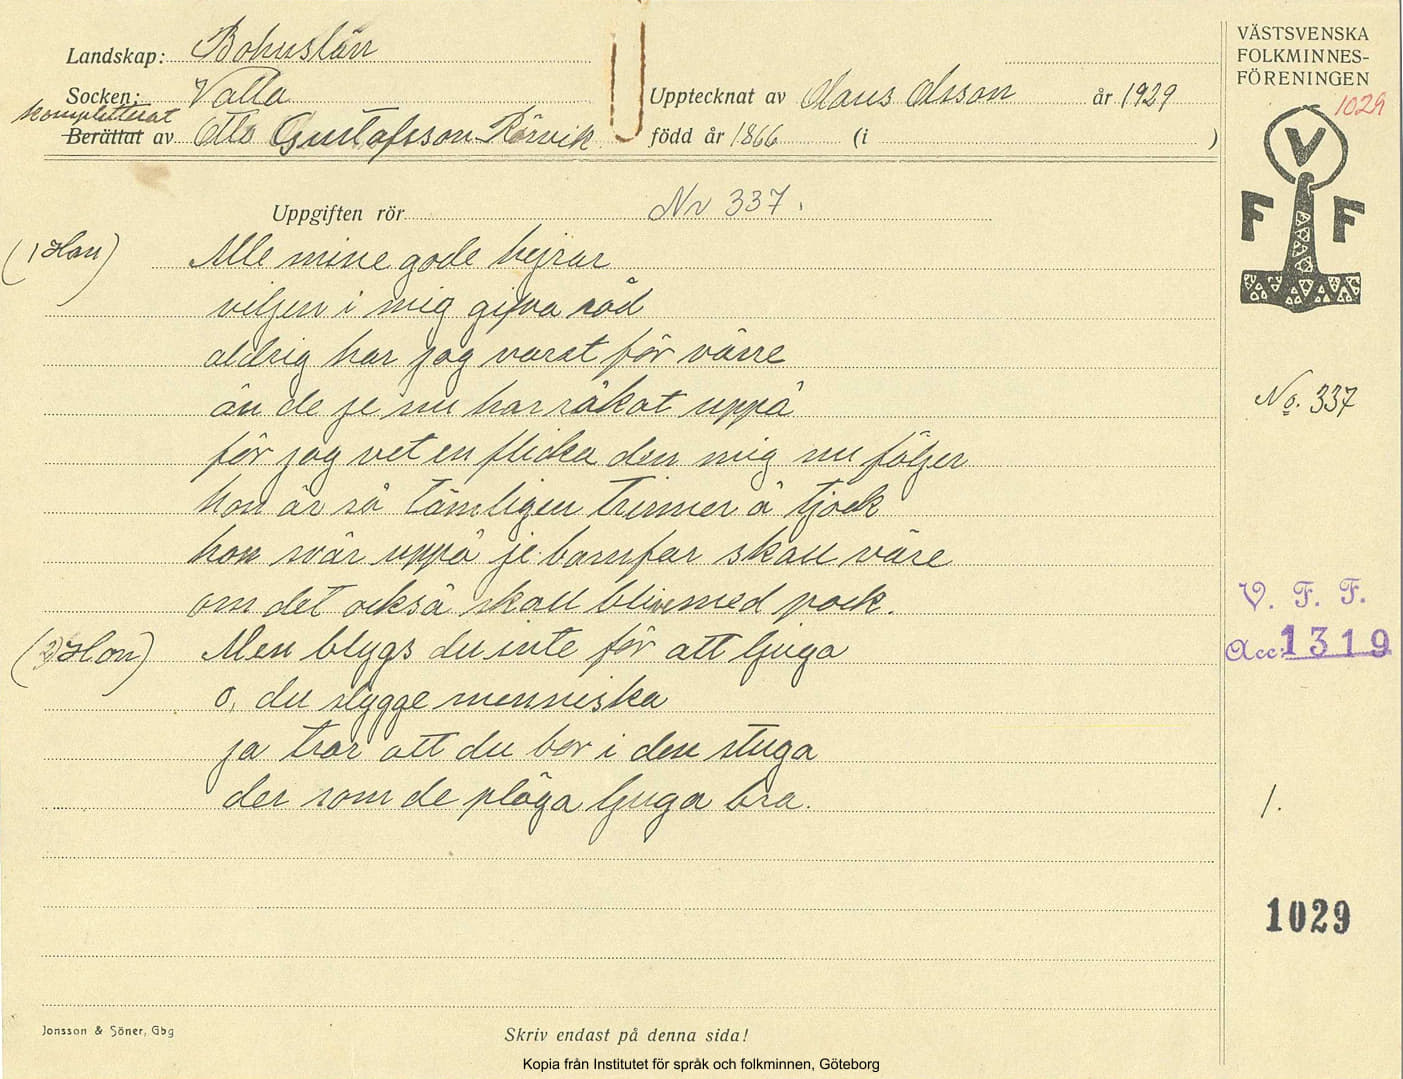 Landskap: Bohuslän
Socken: Valla
Kompletterat
Berättat av Otto Gustafsson Rörvik
Upptecknat av Claus Olsson år 1929
född år 1866 (i )
VÄSTSVENSKA
FOLKMINNES-
FÖRENINGEN
1029
V
F F
Uppgiften rör Nr 337.
(1 Han) Alle mine gode hejrar
viljen i mig gifva råd
aldrig har jag varat för värre
än de je nu har råkat uppå
för jag vet en flicka den mig nu följer
hon är så tämligen trinner å tjock
hon svär uppå je barnfar skall väre
om det också skall blive med pock.
(2 Hon) Men blygs du inte för att ljuga
o, du stygge menniska
ja tror att du bor i den stuga
der som de pläga ljuga bra.
No. 337
V. F. F.
Acc. 1319
1.
1029
Jonsson & Söner, Gbg
Skriv endast på denna sida!
Kopia från Institutet för språk och folkminnen, Göteborg